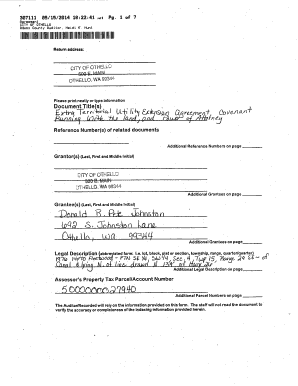 307111 05/15/2014 10:22:41 AM Pg 1 of 7
CITY OF OTHELLO
Adams County Auditor, Heidi K Hunt
Return address:
CITY OF OTHELLO
500 E. MAIN
OTHELLO, WA 99344
Please print neatly or type information
Document Title(s)
Extra Territorial Utility Extension Agreement, Covenant
Running With the land, and Power of Attorney
Reference Number(s) of related documents
Additional Reference Numbers on page
Grantor(s) (Last, First and Middle Initial)
CITY OF OTHELLO
500 E. MAIN
OTHELLO, WA 99344
Additional Grantors on page
Grantee(s) (Last, First and Middle Initial)
Donald R. Pete Johnston
692 S. Johnston Lane
Othello, WA 99344
Additional Grantees on page
Legal Description (abbreviated form: i.e. lot, block, plat or section, township, range, quarter/quarter)
Sec. 4, Twp 15, Range 29
Additional Legal Description on page
Assessor's Property Tax Parcel/Account Number
Additional Parcel Numbers on page
The Auditor/Recorder will rely on the information provided on this form. The staff will not read the document to
verify the accuracy or completeness of the indexing information provided herein.